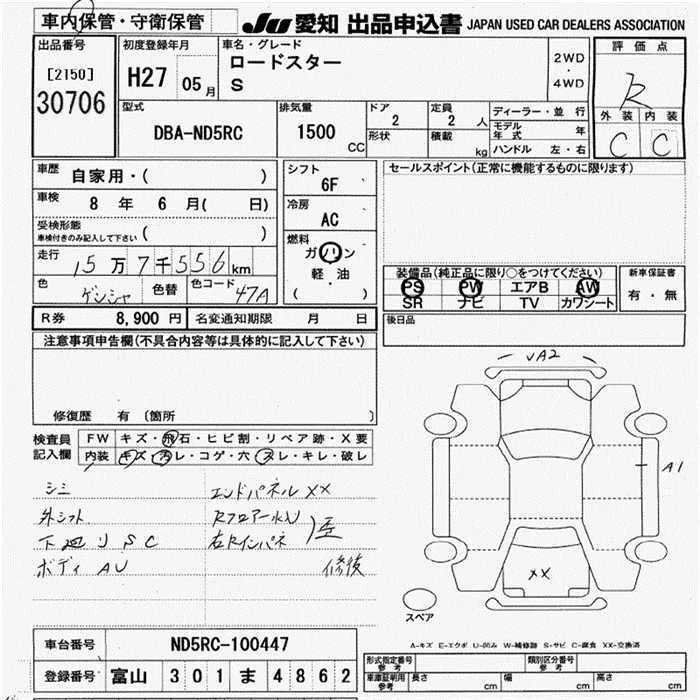 車内保管・守衛保管
JU 愛知 出品申込書 JAPAN USED CAR DEALERS ASSOCIATION
出品番号
[2150]
30706
初度登録年月
H27 05月
車名・グレード
ロードスター
S
2WD
・
4WD
評価点
R
外装 内装
C C
型式
DBA-ND5RC
排気量
1500
CC
ドア
2
形状
定員
2 人
積載
kg
ディーラー・並行
モデル年式 年
ハンドル 左・右
車歴
自家用・( )
車検
8 年 6 月( 日)
受検形態
車検付きのみ記入して下さい ( )
走行
15万7千556km
色
ゲンシャ
色替
色コード
47A
シフト
6F
冷房
AC
燃料
ガソリン
軽・油
( )
セールスポイント(正常に機能するものに限ります)
装備品(純正品に限り○をつけてください)
PS PW エアB AW
SR ナビ TV カワシート
新車保証書
有・無
後日品
R券 8,900 円 名変通知期限 月 日
注意事項申告欄(不具合内容等は具体的に記入して下さい)
修復歴 有 〔箇所 〕
検査員
記入欄
FW キズ・飛石・ヒビ割・リペア跡・X要
内装 キズ・汚レ・コゲ・穴・スレ・キレ・破レ
シミ
外シフト
下廻り S C
ボディ AU
エンドパネル XX
Rフロアー
右Rインパネ
修後
UA2
A1
XX
スペア
A-キズ E-エクボ U-凹み W-補修跡 S-サビ C-腐食 XX-交換済
車台番号 ND5RC-100447
登録番号 富山 301 ま 4862
形式指定番号
参考
類別区分番号
参考
車庫証明用
参考
長さ cm 幅 cm 高さ cm